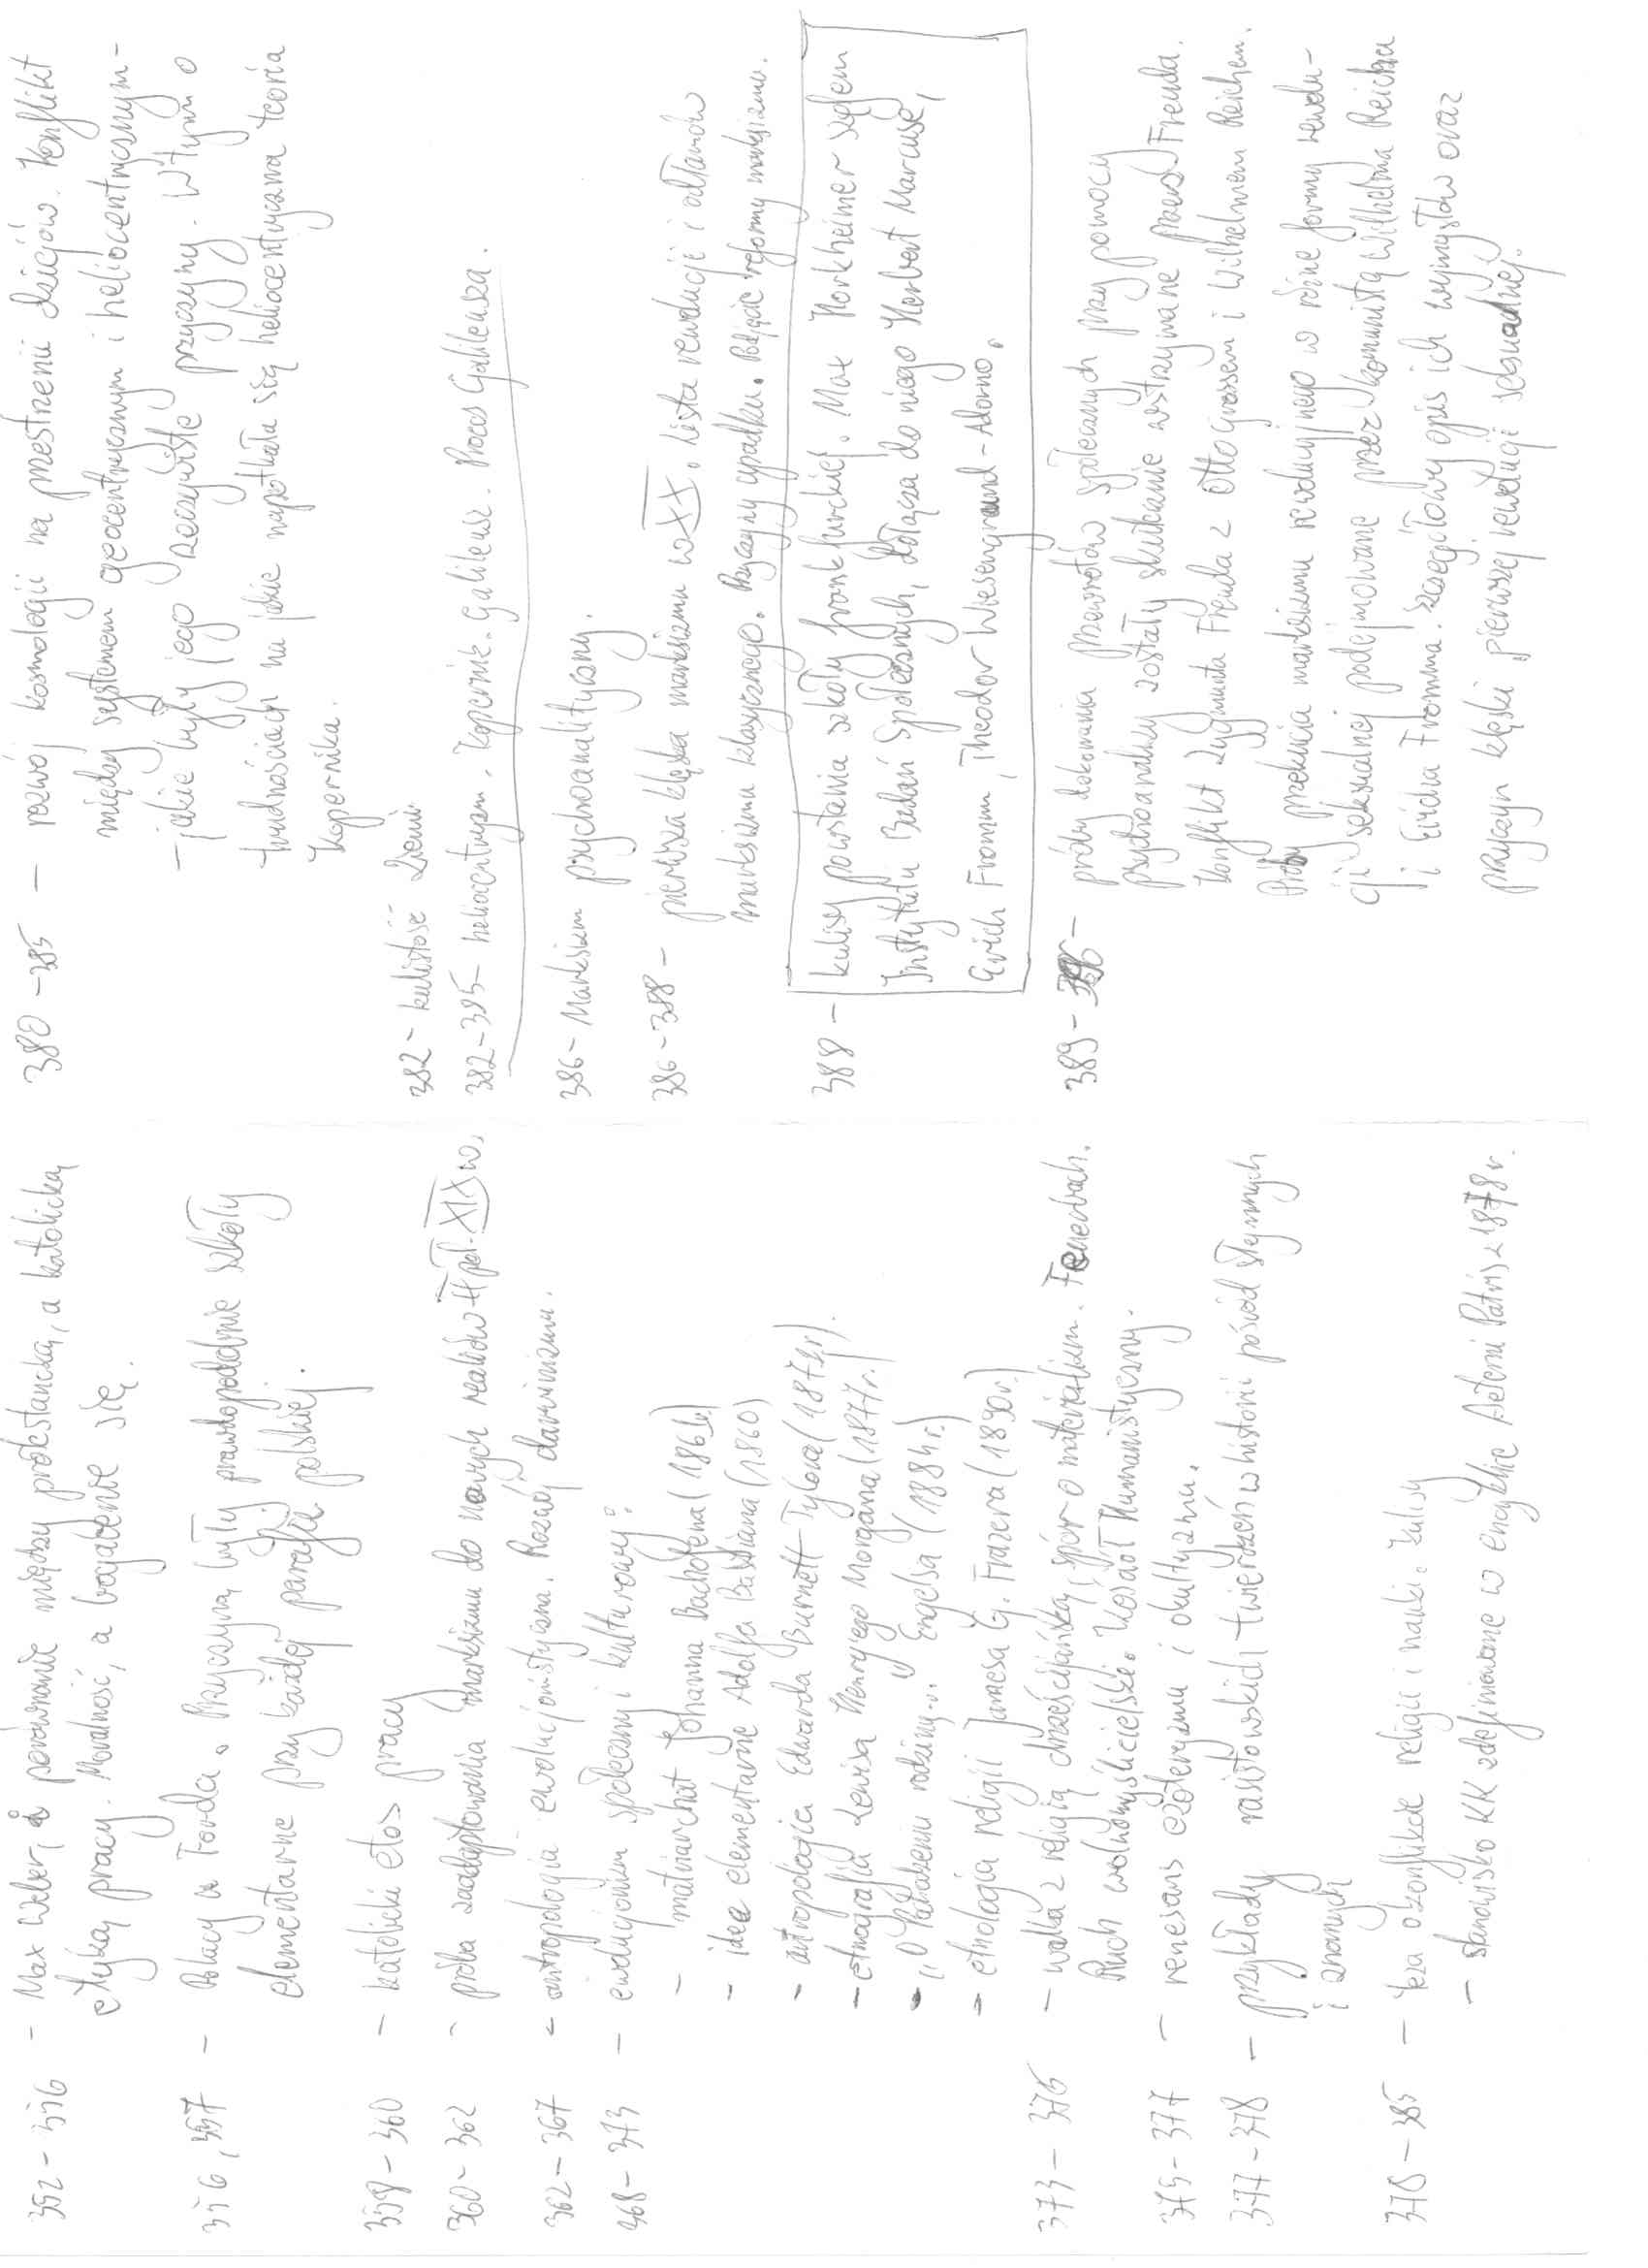 352 – 356 – Max Weber, porównanie między protestancką, a katolicką
etyką pracy. Moralność, a bogacenie się.
356, 357 – Polacy u Forda. Przyczyną były prawdopodobnie szkoły
elementarne przy każdej parafii polskiej.
358 – 360 – katolicki etos pracy
360 – 362 – próba zaadaptowania marksizmu do nowych realiów II poł. XIX w.
362 – 367 – antropologia ewolucjonistyczna. Rozwój darwinizmu.
368 – 373 – ewolucjonizm społeczny i kulturowy:
– matriarchat Johanna Bachofena (1861)
– idee elementarne Adolfa Bastiana (1860)
– antropologia Edwarda Burnett-Tylora (1871r).
– etnografia Lewisa Henry'ego Morgana (1877r.)
– "O pochodzeniu rodziny..." Engelsa (1884r.)
– etnologia religii Jamesa G. Frazera (1890r.)
373 – 375 – walka z religią chrześcijańską, spór o materializm. Feuerbach.
Ruch wolnomyślicielski. Kościół Humanistyczny.
375 – 377 – renesans ezoteryzmu i okultyzmu.
377 – 378 – przykłady rasistowskich twierdzeń w historii pośród słynnych
i znanych
378 – 385 – teza o konflikcie religii i nauki. Kulisy
– stanowisko KK zdefiniowane w encyklice Aeterni Patris z 1878r.
380 – 385 – rozwój kosmologii na przestrzeni dziejów. Konflikt
między systemem geocentrycznym i heliocentrycznym –
– jakie były jego rzeczywiste przyczyny. W tym o
trudnościach na jakie napotkała się heliocentryczna teoria
Kopernika.
382 – kulistość Ziemi.
382 – 385 – heliocentryzm. Kopernik. Galileusz. Proces Galileusza.
386 – Marksizm psychoanalityczny.
386 – 388 – pierwsza klęska marksizmu w XX. Lista rewolucji i odłamów
marksizmu klasycznego. Przyczyny upadku. Podjęcie reformy marksizmu.
388 – kulisy powstania szkoły frankfurckiej. Max Horkheimer szefem
Instytutu Badań Społecznych, dołącza do niego Herbert Marcuse,
Erich Fromm, Theodor Wiesengrund-Adorno.
389 – próby dokonania przewrotów społecznych przy pomocy
psychoanalizy zostały skutecznie wstrzymane przez Freuda.
Konflikt Zygmunta Freuda z Otto Grossem i Wilhelmem Reichem.
Próby przekucia marksizmu rewolucyjnego w różne formy rewolu-
cji seksualnej podejmowane przez komunistę Wilhelma Reicha
i Ericha Fromma. Szczegółowy opis ich wymysłów oraz
przyczyn klęski pierwszej rewolucji seksualnej.